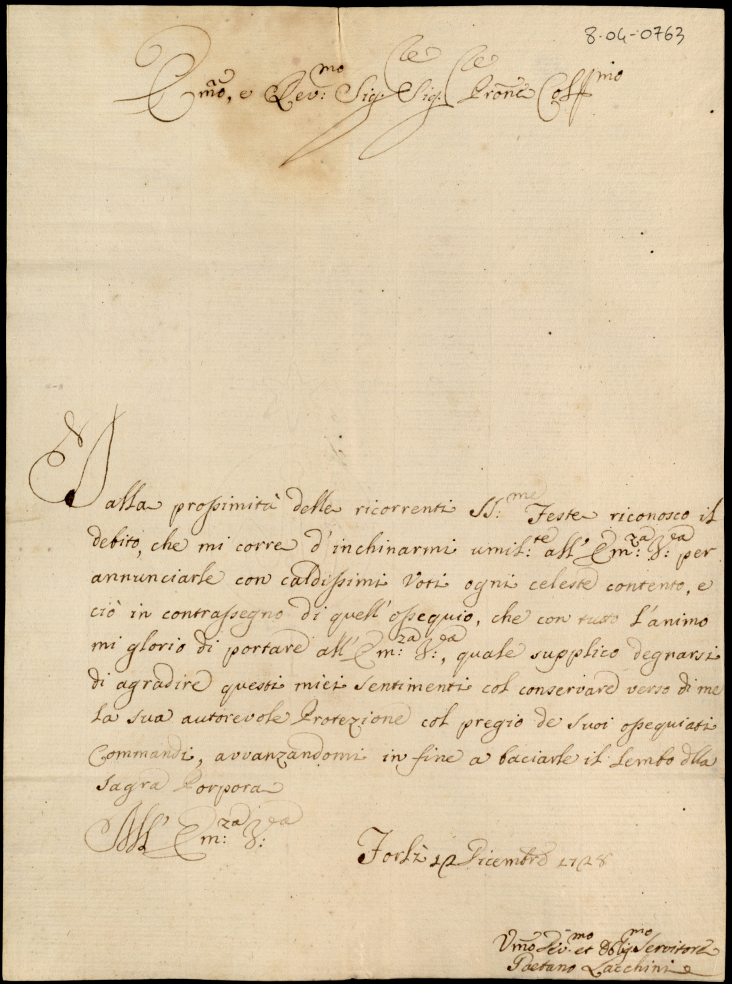 8-04-0763
Em̄o, e Rev:mo Sig:re Sig:re Pr̄one Coll:mo
Dalla prossimità delle ricorrenti SS:me Feste riconosco il
debito, che mi corre d'inchinarmi umil:te all'Em:za V:ra per
annunciarle con caldissimi voti ogni celeste contento, e
ciò in contrassegno di quell'ossequio, che con tutto l'animo
mi glorio di portare all'Em:za V:ra, quale supplico degnarsi
di agradire questi miei sentimenti col conservare verso di me
la sua autorevole Protezione col pregio de suoi ossequiati
Commandi, avvanzandomi in fine a baciarle il Lembo dlla
sagra Porpora
All'Em:za V:ra
Forlì 12 Dicembre 1728
Um̄o Div:mo et Oblig:mo Servitore
Gaetano Zacchini